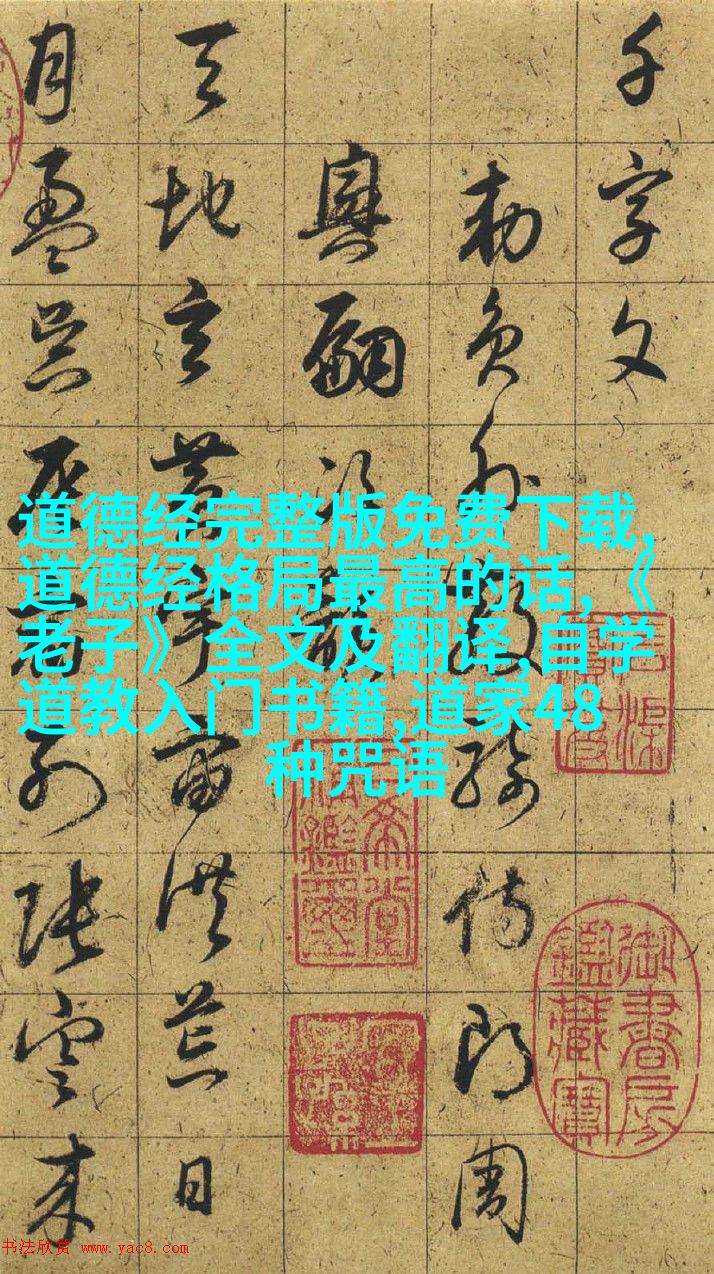 道德经完整版免费下载,
道德经格局最高的话,《
老子》全文及翻译,自学
道教入门书籍,道家48
种咒语
千字文
勅員外散騎侍郎周
興嗣次韻
天地玄黃宇宙洪荒日
月盈昃辰宿列張寒來
御書房
鑑藏寶
书法欣赏 www.yac8.com